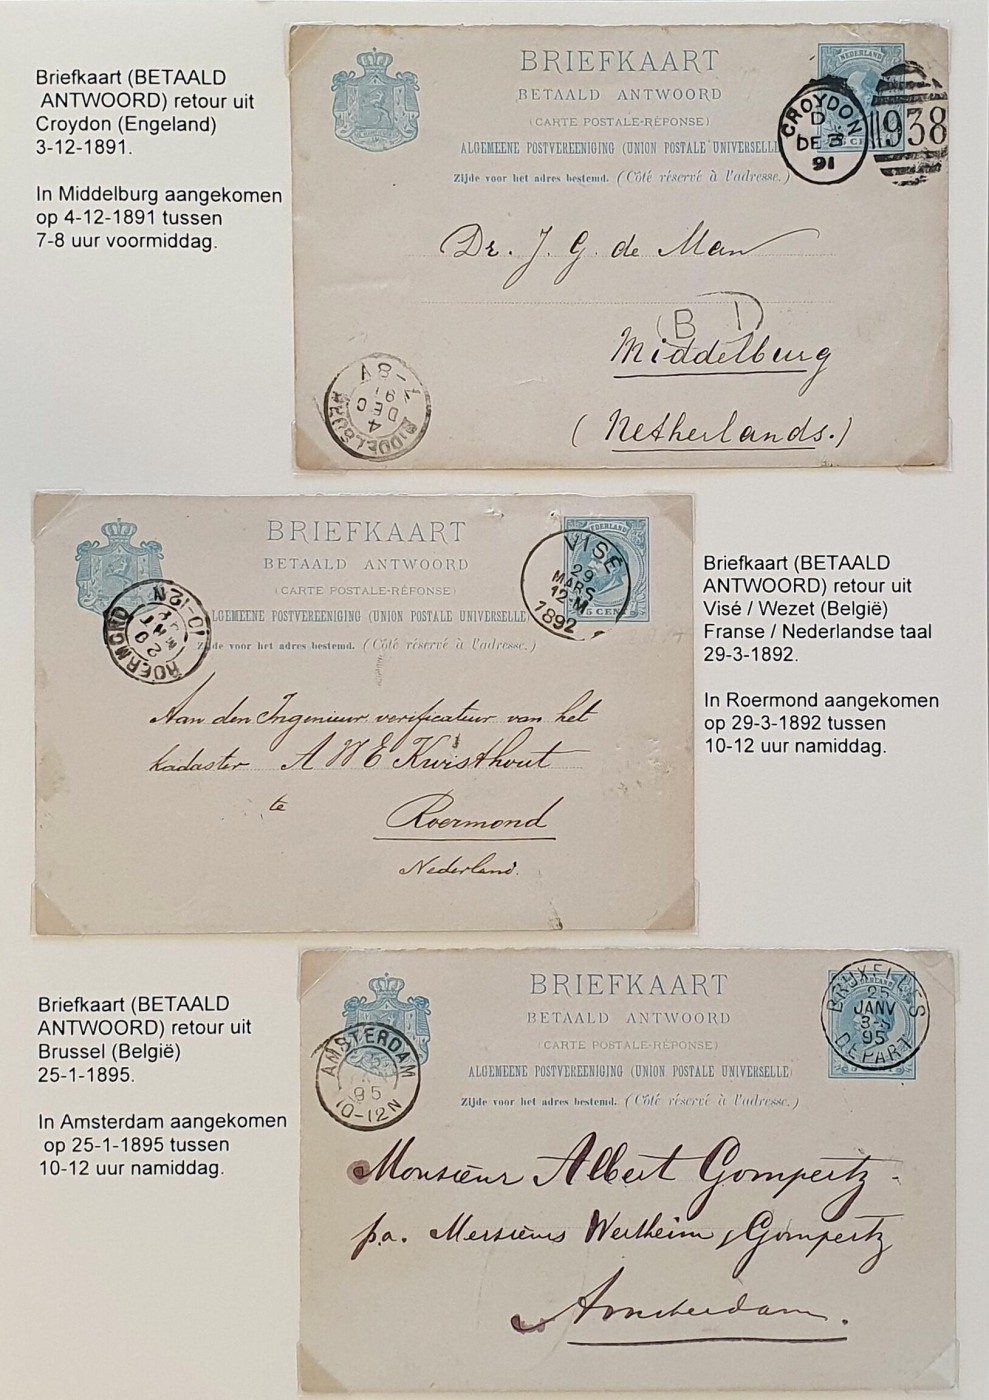 Briefkaart (BETAALD
ANTWOORD) retour uit
Croydon (Engeland)
3-12-1891.
In Middelburg aangekomen
op 4-12-1891 tussen
7-8 uur voormiddag.
BRIEFKAART
BETAALD ANTWOORD
(CARTE POSTALE-RÉPONSE)
ALGEMEENE POSTVEREENIGING (UNION POSTALE UNIVERSELLE
Zijde voor het adres bestemd. (Côté réservé à l'adresse.)
NEDERLAND
CROYDON
D
DE 3
91
938
Dr. J. G. de Man
B 1
Middelburg
(Netherlands.)
MIDDELBURG
4
DEC
91
7-8V
BRIEFKAART
BETAALD ANTWOORD
(CARTE POSTALE-RÉPONSE)
ALGEMEENE POSTVEREENIGING (UNION POSTALE UNIVERSELLE)
Zijde voor het adres bestemd. (Côté réservé à l'adresse.)
NEDERLAND
5 CENT
VISÉ
29
MARS
12-M
1892
ROERMOND
10-12N
Aan den Ingenieur verificateur van het
kadaster A W E Kwisthout
te
Roermond
Nederland.
Briefkaart (BETAALD
ANTWOORD) retour uit
Visé / Wezet (België)
Franse / Nederlandse taal
29-3-1892.
In Roermond aangekomen
op 29-3-1892 tussen
10-12 uur namiddag.
Briefkaart (BETAALD
ANTWOORD) retour uit
Brussel (België)
25-1-1895.
In Amsterdam aangekomen
op 25-1-1895 tussen
10-12 uur namiddag.
BRIEFKAART
BETAALD ANTWOORD
(CARTE POSTALE-RÉPONSE)
ALGEMEENE POSTVEREENIGING (UNION POSTALE UNIVERSELLE)
Zijde voor het adres bestemd. (Côté réservé à l'adresse.)
BRUXELLES
25
JANV
3-S
95
DEPART
AMSTERDAM
95
10-12N
Monsieur Albert Gompertz
p.a. Messieurs Wertheim & Gompertz
Amsterdam.